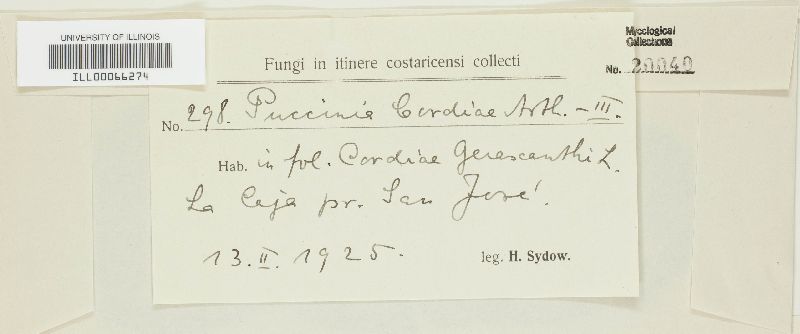 UNIVERSITY OF ILLINOIS
ILL00066274
Mycological
Collections
No. 20040
Fungi in itinere costaricensi collecti
No. 298. Puccinia Cordiae Arth. – III.
Hab. in fol. Cordiae Gerascanthi L.
La Caja pr. San José.
13. II. 1925.
leg. H. Sydow.